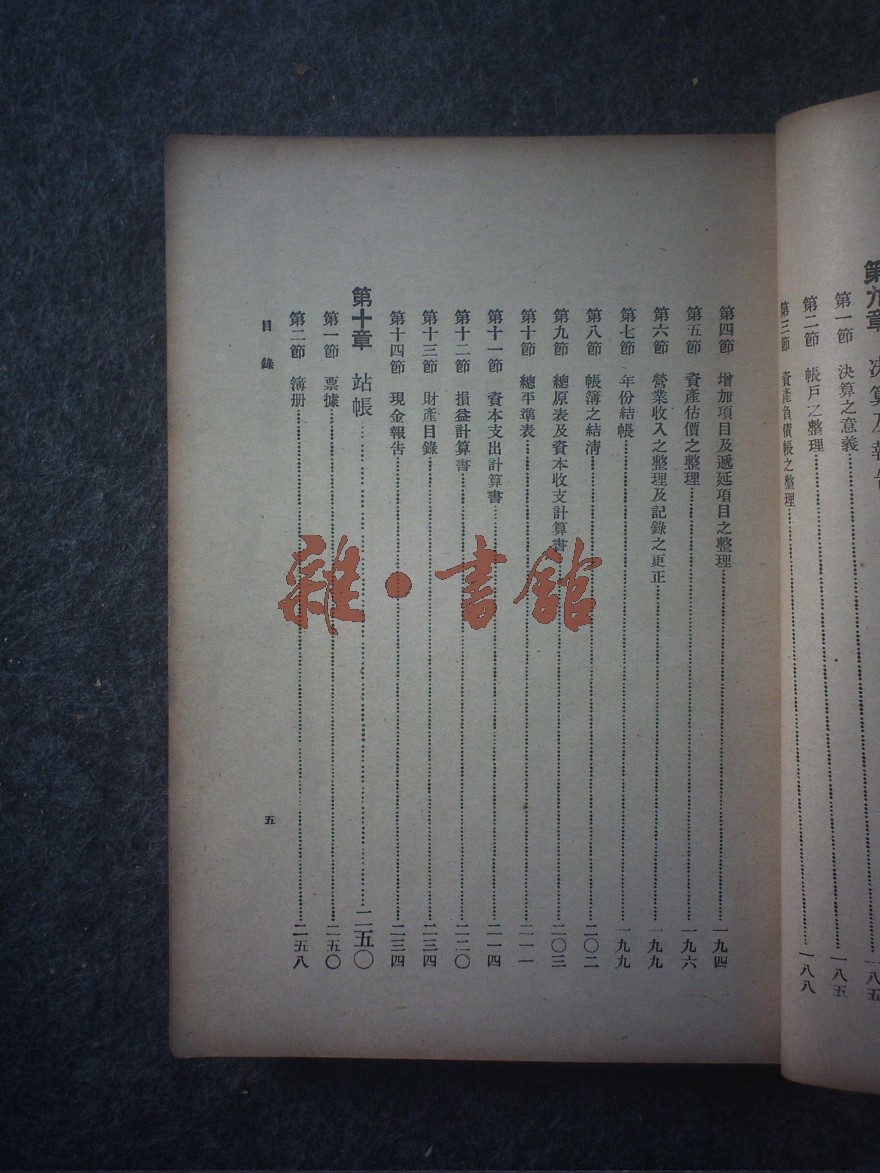 第九章 決算及報告……一八五
第一節 決算之意義……一八五
第二節 帳戶之整理……一八八
第三節 資產負債帳之整理……
第四節 增加項目及遞延項目之整理……一九四
第五節 資產估價之整理……一九六
第六節 營業收入之整理及記錄之更正……一九九
第七節 年份結帳……一九九
第八節 帳簿之結淸……二〇二
第九節 總原表及資本收支計算書……二〇三
第十節 總平準表……二一一
第十一節 資本支出計算書……二一四
第十二節 損益計算書……二二〇
第十三節 財產目錄……二三四
第十四節 現金報告……二三四
第十章 站帳……二五〇
第一節 票據……二五〇
第二節 簿册……二五八
目錄
五
雜·書館